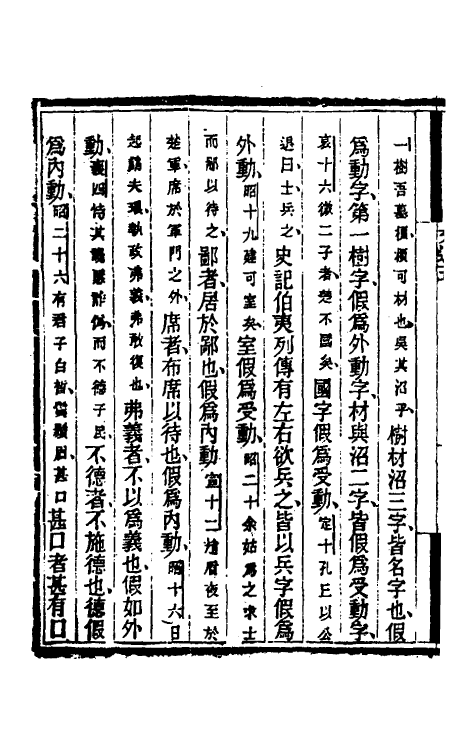 一樹吾墓檟、檟可材也、吳其沼乎、樹材沼三字、皆名字也、假
爲動字、第一樹字假爲外動字、材與沼二字、皆假爲受動字、
哀十六微二子者、楚不國矣、國字假爲受動、定十孔丘以公
退曰士兵之、史記伯夷列傳有左右欲兵之、皆以兵字假爲
外動、昭十九建可室矣、室假爲受動、昭二十余姑爲之求士
而鄙以待之、鄙者居於鄙也、假爲內動、宣十二趙旃夜至於
楚軍、席於軍門之外、席者布席以待也、假爲內動、昭十六曰
起請夫環、執政弗義、弗敢復也、弗義者、不以爲義也、假如外
動、襄四恃其讒慝詐僞、而不德于民、不德者、不施德也、德假
爲內動、昭二十六有君子白晳、鬒鬚眉、甚口、甚口者、甚有口